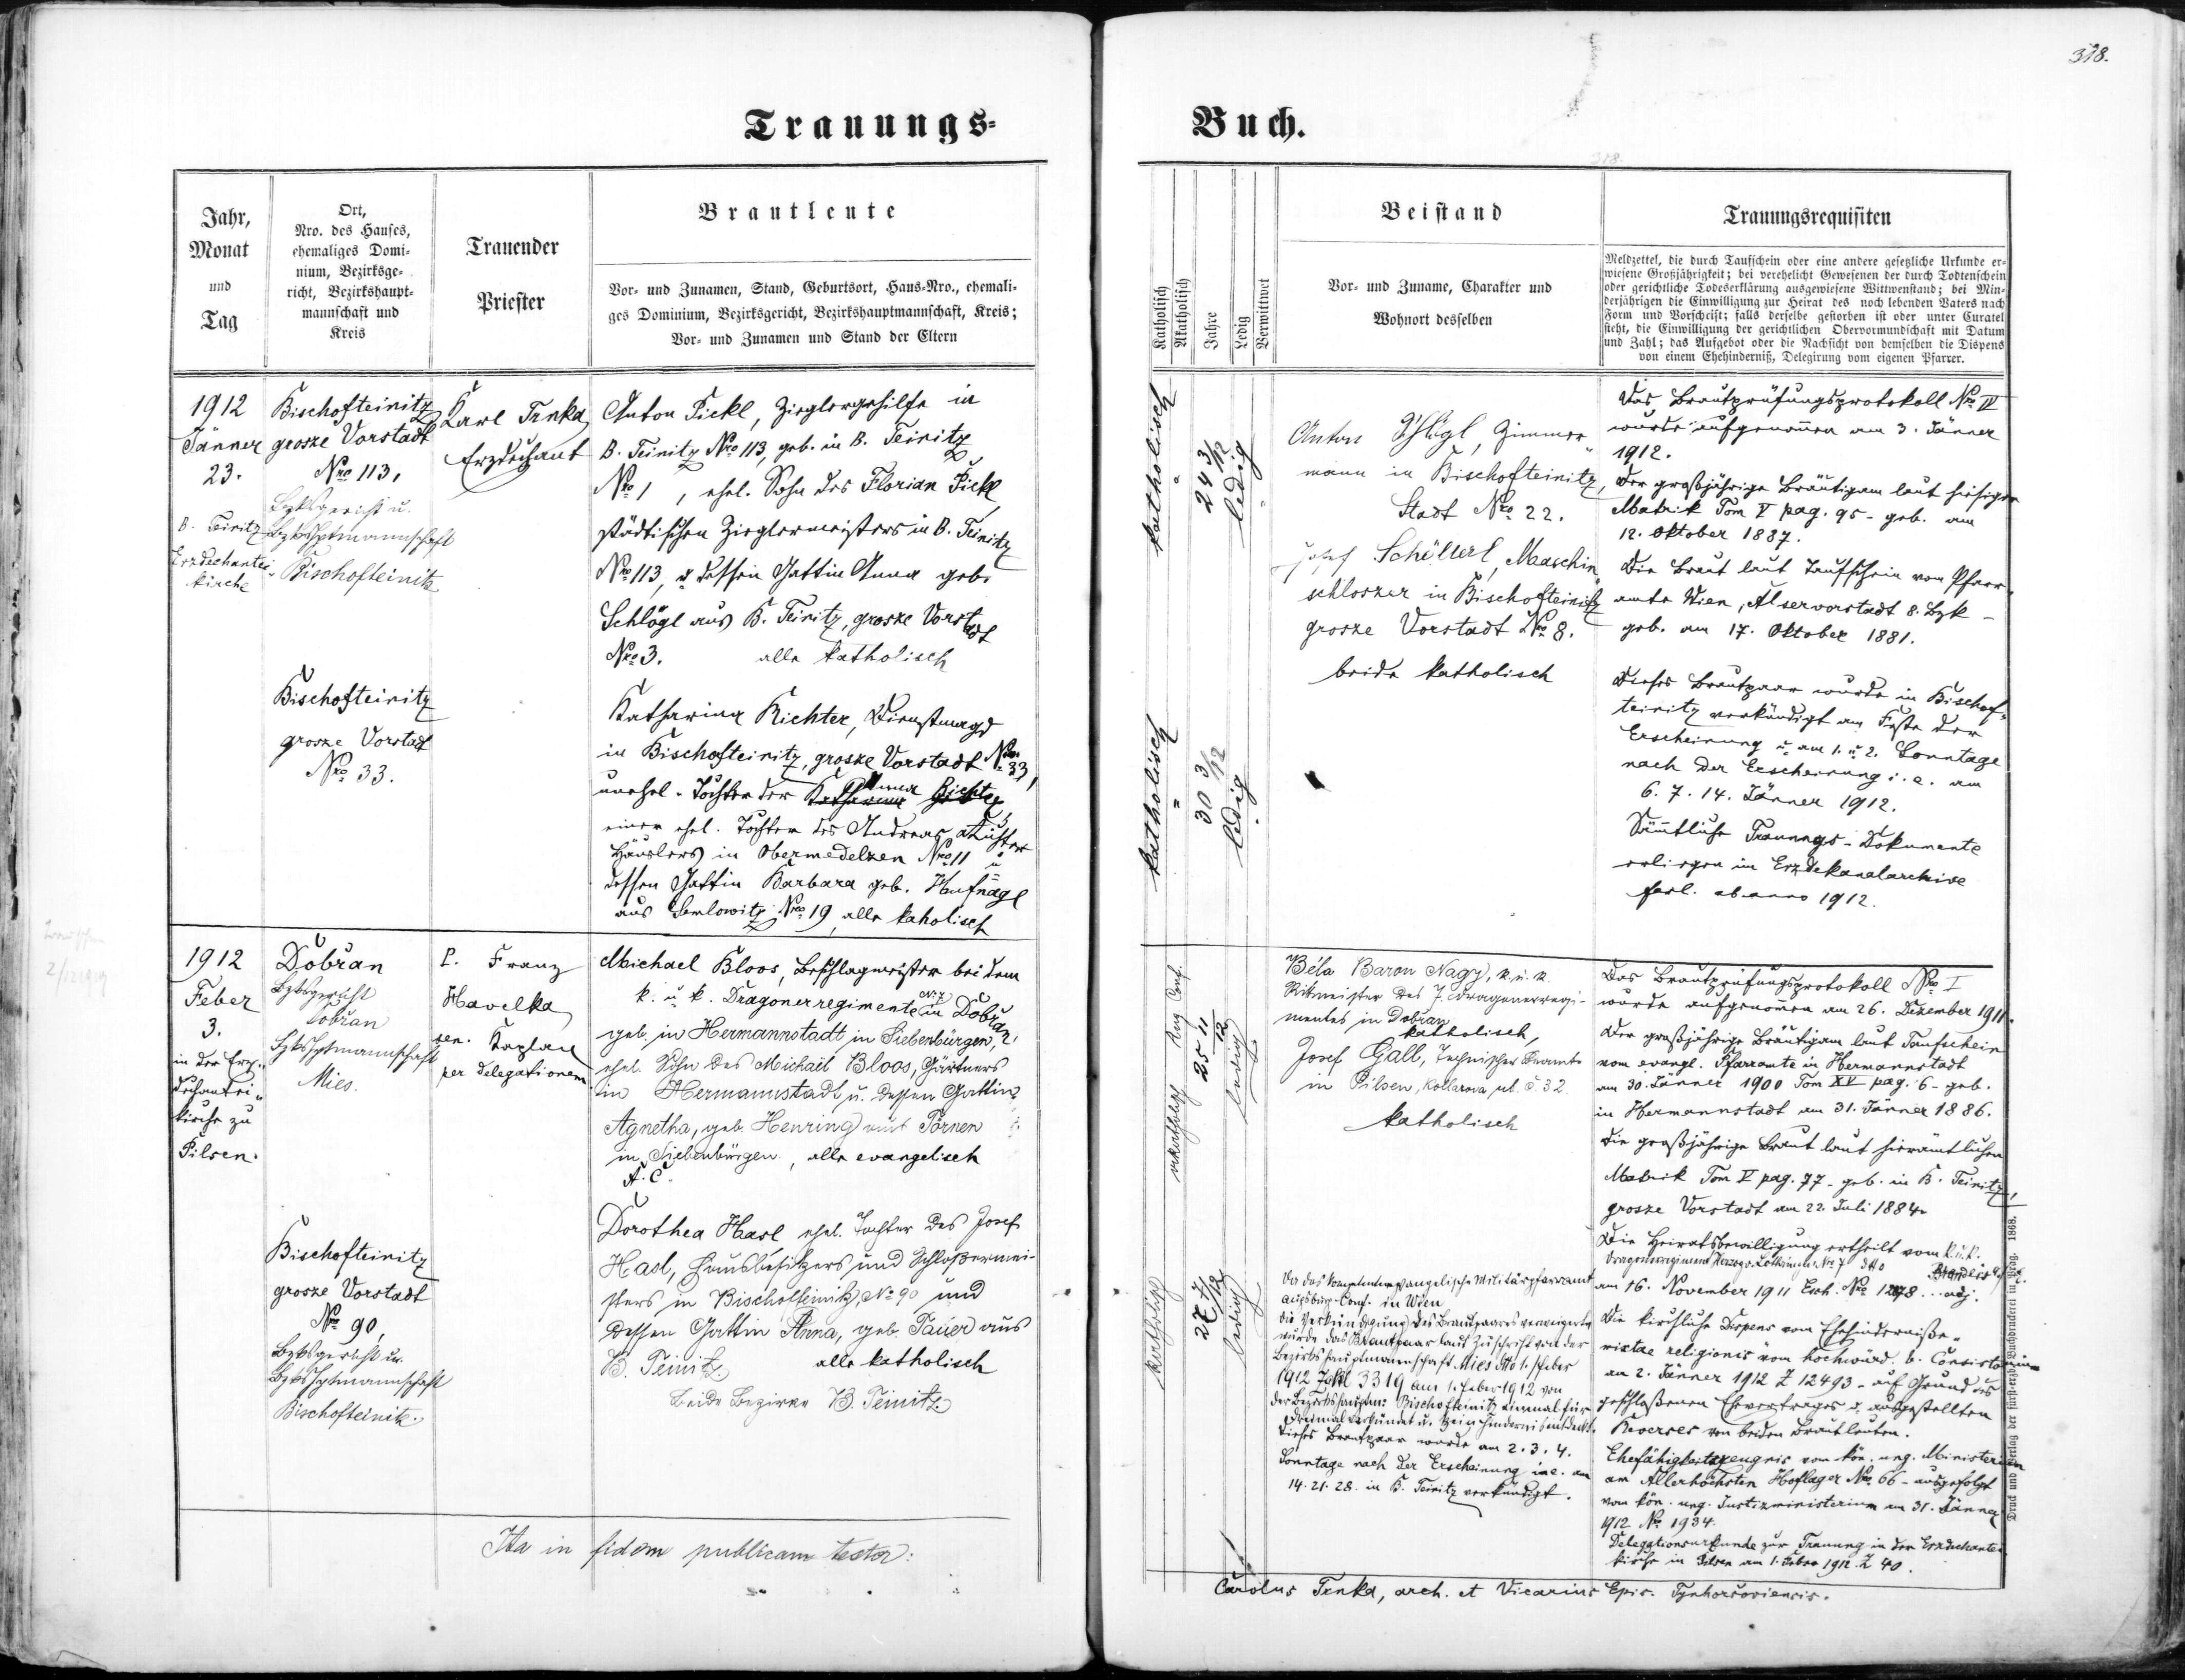 Trauungs-
Jahr,
Monat
und
Tag
Ort,
Nro. des Hauses,
ehemaliges Domi-
nium, Bezirksge-
richt, Bezirkshaupt-
mannschaft und
Kreis
Trauender
Priester
Brautleute
Vor- und Zunamen, Stand, Geburtsort, Haus-Nro., ehemali-
ges Dominium, Bezirksgericht, Bezirkshauptmannschaft, Kreis;
Vor- und Zunamen und Stand der Eltern
1912
Jänner
23.
B. Teinitz
Erzdechantei-
kirche
Bischofteinitz
grosze Vorstadt
Nro 113,
Bzksgericht u.
Bzkshptmannschaft
Bischofteinitz
Karl Trnka
Erzdechant
Anton Pickl, Zieglergehilfe in
B. Teinitz Nro 113, geb. in B. Teinitz
Nro 1, ehel. Sohn des Florian Pickl,
städtischen Zieglermeisters in B. Teinitz
Nro 113, u. dessen Gattin Anna geb.
Schlögl aus B. Teinitz, grosze Vorstadt
Nro 3. alle katholisch
Bischofteinitz
grosze Vorstadt
Nro 33.
Katharina Richter, Dienstmagd
in Bischofteinitz, grosze Vorstadt Nro 33,
unehel. Tochter der Anna Richter
einer ehel. Tochter des Andreas
Häuslers in Obermedelzen Nro 11 u.
dessen Gattin Barbara geb. Hufnagl
aus Semlowitz Nro 19, alle kaholisch
1912
Feber
3.
in der Erz-
dechantei-
kirche zu
Pilsen.
Dobřan
Bzksgericht
Dobřan
Bzkshptmannschaft
Mies.
P. Franz
Havelka
sen. Kaplan
per delegationem
Michael Bloos, Beschlagmeister bei dem
k. u. k. Dragonerregimente Nr. 7 in Dobřan,
geb. in Hermannstadt in Siebenbürgen,
ehel. Sohn des Michael Bloos, Gärtners
in Hermannstadt u. dessen Gattin
Agnetha, geb. Henring aus Törnen
in Siebenbürgen, alle evangelisch
A. C.
Bischofteinitz
grosze Vorstadt
Nro 90,
Bzksgericht u.
Bzkshptmannschaft
Bischofteinitz.
Dorothea Hasl, ehel. Tochter des Josef
Hasl, Hausbesitzers und Schloßermei-
sters in Bischofteinitz, No 90 und
dessen Gattin Anna, geb. Pauer aus
B. Teinitz. alle katholisch
beide Bezirke B. Teinitz.
Ita in fidem publicam testor:
318.
Buch.
Katholisch
Akatholisch
Jahre
Ledig
Verwittwet
Beistand
Vor- und Zuname, Charakter und
Wohnort desselben
Trauungsrequisiten
Meldzettel, die durch Taufschein oder eine andere gesetzliche Urkunde er-
wiesene Großjährigkeit; bei verehelicht Gewesenen der durch Todtenschein
oder gerichtliche Todeserklärung ausgewiesene Wittwenstand; bei Min-
derjährigen die Einwilligung zur Heirat des noch lebenden Vaters nach
Form und Vorschrift; falls derselbe gestorben ist oder unter Curatel
steht, die Einwilligung der gerichtlichen Obervormundschaft mit Datum
und Zahl; das Aufgebot oder die Nachsicht von demselben die Dispens
von einem Ehehinderniß, Delegirung vom eigenen Pfarrer.
katholisch
24 3/12
ledig
Anton Schlögl, Zimmer-
mann in Bischofteinitz,
Stadt Nro 22.
Josef Schöllerl, Maschin-
schloszer in Bischofteinitz
grosze Vorstadt Nro 8.
beide katholisch
Das Brautprüfungsprotokoll Nro IV
wurde aufgenommen am 3. Jänner
1912.
Der großjährige Bräutigam laut hiesiger
Matrik Tom V pag. 95 - geb. am
12. Oktober 1887.
Die Braut laut Taufschein vom Pfarr-
amte Wien, Alservorstadt 8. Bzk -
geb. am 17. Oktober 1881.
katholisch
30 3/12
ledig
Dieses Brautpaar wurde in Bischof-
teinitz verkündigt am Feste der
Erscheinung u. am 1. u. 2. Sonntage
nach der Erscheinung i. e. am
6. 7. 14. Jänner 1912.
Sämtliche Trauungs-Dokumente
erliegen im Erzdekanalarchive
fasc. ab anno 1912.
akatholisch Aug. Conf.
25 11/12
ledig
Béla Baron Nagy, k. u. k.
Ritmeister des 7. Dragonerregi-
mentes in Dobřan
katholisch,
Josef Gall, Technischer Beamte
in Pilsen, Kollarova ul. č. 32.
katholisch
Das Brautprüfungsprotokoll Nro I
wurde aufgenommen am 26. Dezember 1911.
Der großjährige Bräutigam laut Taufschein
vom evangl. Pfarramte in Hermannstadt
am 30. Jänner 1900 Tom XV pag. 6 - geb.
in Hermannstadt am 31. Jänner 1886.
Die großjährige Braut laut hierämtlicher
Matrik Tom V pag. 77 - geb. in B. Teinitz,
grosze Vorstadt am 22. Juli 1884.
Die Heiratsbewilligung ertheilt vom k. u. k.
Dragonerregiment Herzog v. Lothringen Nro 7 dtto
am 16. November 1911 Exh. Nro adj.
Die kirchliche Dispens vom Ehehinderniße
mixtae religionis vom hochwürd. b. Consistorium
am 2. Jänner 1912 Z 12493 - auf Grund des
geschloßenen Ehevertrages u. ausgestellten
Reverses von beiden Brautleuten.
Ehefähigkeitszeugnis vom kön. ung. Ministerium
am Allerhöchsten Hoflager Nro 66 - ausgefolgt
vom kön. ung. Justizministerium am 31. Jänner
1912 No 1934.
Delegationsurkunde zur Trauung in der Erzdechantei-
kirche in Pilsen am 1. Feber 1912 Z 40.
katholisch
27 7/12
ledig
Da das kompetente evangelische Militärpfarramt
Augsburg. Conf. in Wien
die Verkündigung des Brautpaares verweigerte
wurde das Brautpaar laut Zuschrift von der
Bezirkshauptmannschaft Mies dtto 1. Feber
1912 Zahl 3319 am 1. Feber 1912 von
der Bezirkshauptm. Bischofteinitz einmal für
dreimal verkündet u. kein Hindernis entdeckt.
Dieses Brautpaar wurde am 2. 3. 4.
Sonntage nach der Erscheinung i. e. am
14. 21. 28. in B. Teinitz verkündigt.
Druck und Verlag der fürst-erzb. Buchdruckerei in Prag. 1868.
Carolus Trnka, arch. et Vicarius Epis.